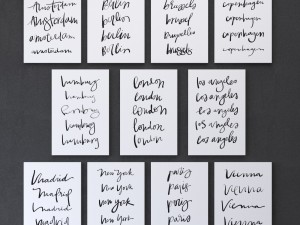 Amsterdam
Amsterdam
amsterdam
amsterdam
berlin
berlin
berlin
Berlin
brussel
brussel
bruxelles
brussels
copenhagen
copenhagen
copenhagen
copenhagen
hamburg
hamburg
hamburg
hamburg
hamburg
london
london
london
london
london
los angeles
los angeles
los angeles
los angeles
los angeles
madrid
madrid
madrid
madrid
new york
new york
new york
new york
paris
paris
paris
paris
Vienna
Vienna
Vienna
Vienna